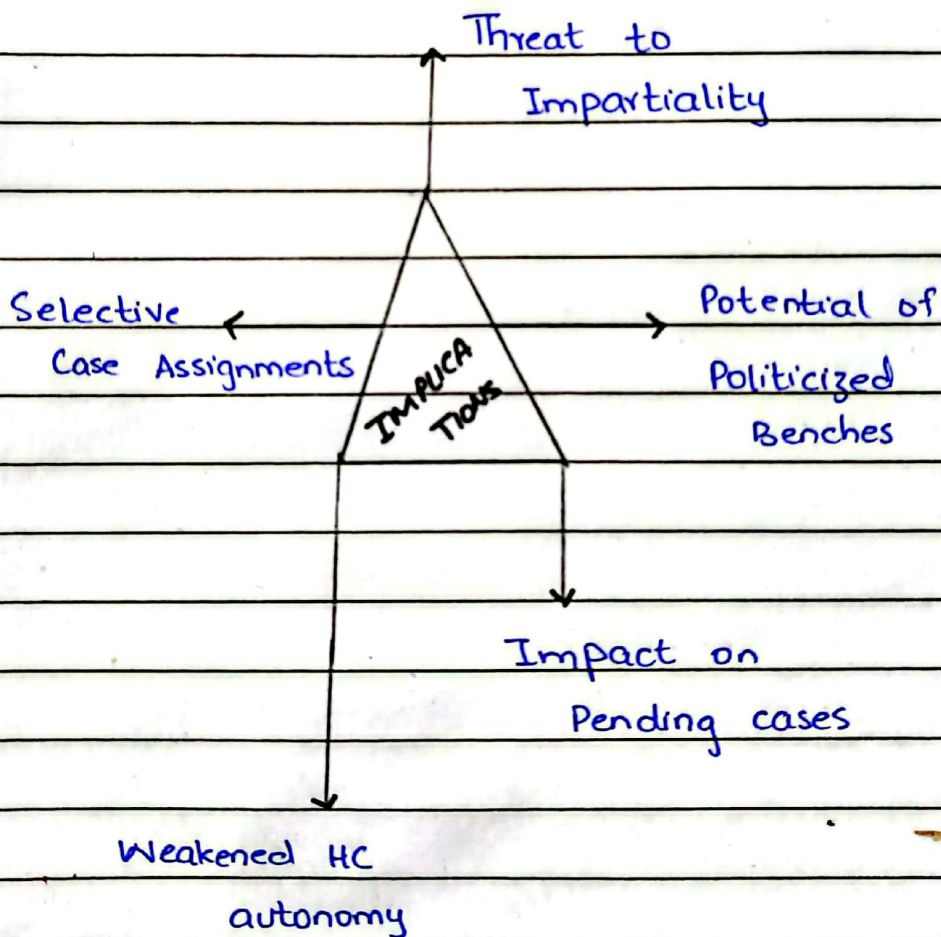 Threat to
Impartiality
Selective
Case Assignments
Potential of
Politicized
Benches
IMPLICA
TIONS
Impact on
Pending cases
Weakened HC
autonomy